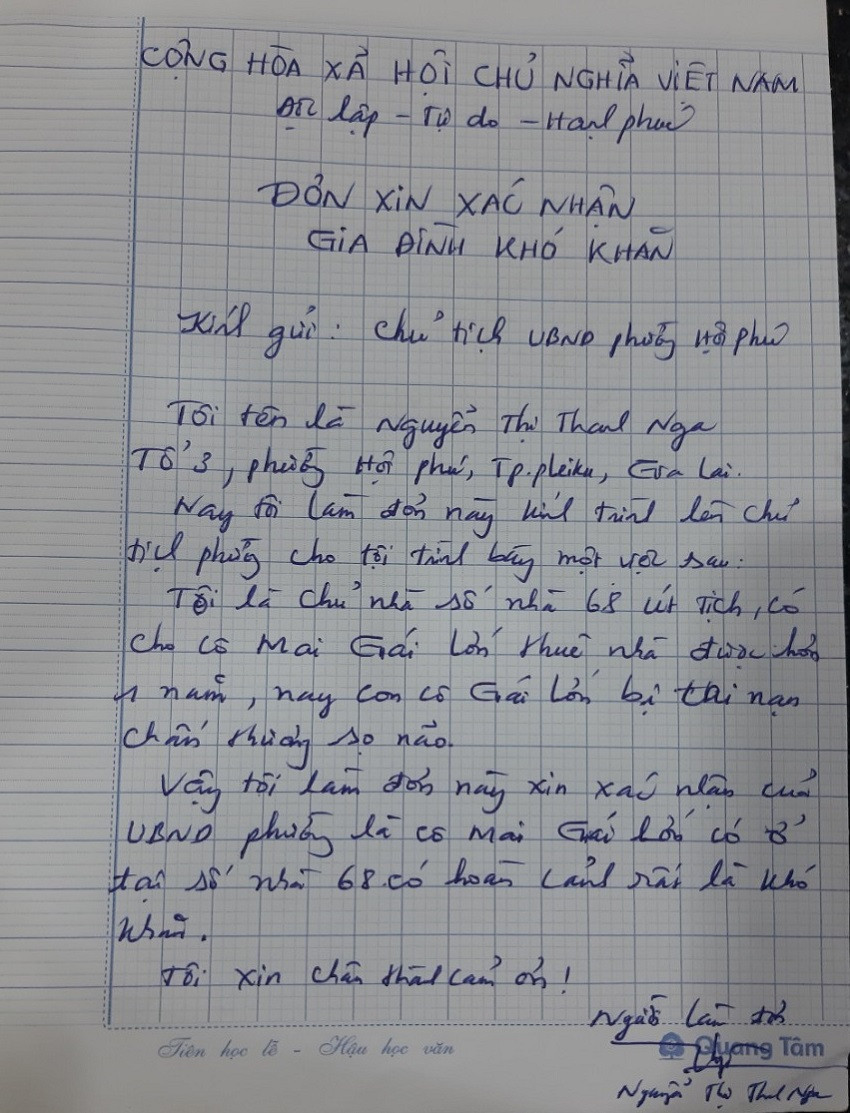 CỘNG HÒA XÃ HỘI CHỦ NGHĨA VIỆT NAM
Độc lập - Tự do - Hạnh phúc
ĐƠN XIN XÁC NHẬN
GIA ĐÌNH KHÓ KHĂN
Kính gửi: Chủ tịch UBND phường Hội phú
Tôi tên là Nguyễn Thị Thanh Nga
Tổ 3, phường Hội phú, Tp.pleiku, Gia Lai.
Nay tôi làm đơn này kính trình lên chủ
tịch phường cho tôi trình bày một việc sau:
Tôi là chủ nhà số nhà 68 Út Tịch, có
cho cô Mai Gái Lớn thuê nhà được hơn
1 năm, nay con cô Gái Lớn bị tai nạn
chấn thương sọ não.
Vậy tôi làm đơn này xin xác nhận của
UBND phường là cô Mai Gái Lớn có ở
tại số nhà 68 có hoàn cảnh rất là khó
khăn.
Tôi xin chân thành cảm ơn!
Người làm đơn
Tiên học lễ - Hậu học văn
Quang Tâm
Nguyễn Thị Thanh Nga